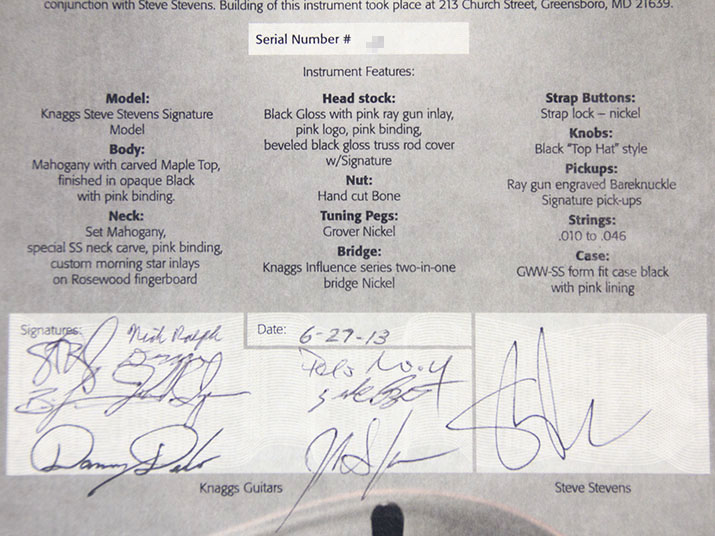 conjunction with Steve Stevens. Building of this instrument took place at 213 Church Street, Greensboro, MD 21639.
Serial Number #
Instrument Features:
Model:
Knaggs Steve Stevens Signature
Model
Body:
Mahogany with carved Maple Top,
finished in opaque Black
with pink binding.
Neck:
Set Mahogany,
special SS neck carve, pink binding,
custom morning star inlays
on Rosewood fingerboard
Head stock:
Black Gloss with pink ray gun inlay,
pink logo, pink binding,
beveled black gloss truss rod cover
w/Signature
Nut:
Hand cut Bone
Tuning Pegs:
Grover Nickel
Bridge:
Knaggs Influence series two-in-one
bridge Nickel
Strap Buttons:
Strap lock – nickel
Knobs:
Black "Top Hat" style
Pickups:
Ray gun engraved Bareknuckle
Signature pick-ups
Strings:
.010 to .046
Case:
GWW-SS form fit case black
with pink lining
Signatures:
Date: 6-27-13
Danny
Knaggs Guitars
Steve Stevens